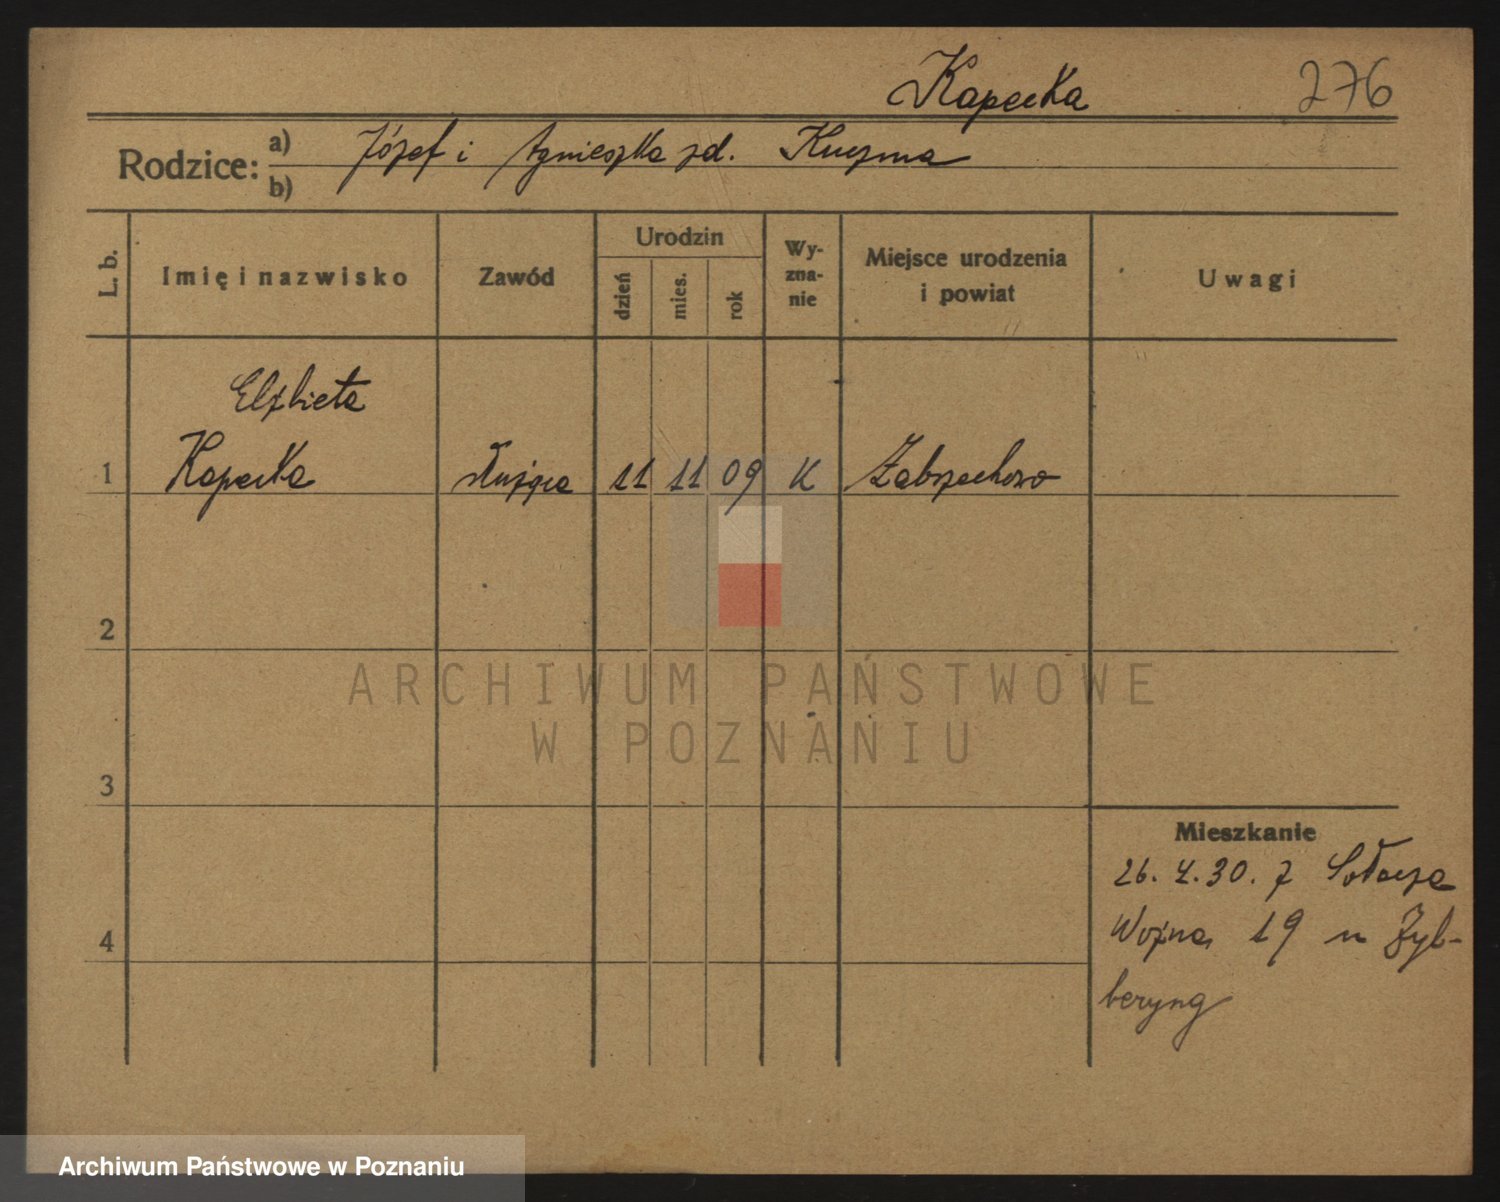 Kapecka
276
Rodzice:
a) Józef i Agnieszka zd. Kuczma
b)
L. b.
Imię i nazwisko
Zawód
Urodzin
dzień
mies.
rok
Wy-
zna-
nie
Miejsce urodzenia
i powiat
Uwagi
Elżbieta
1 Kapecka służąca 11 11 09 K Zabrzechowo
2
3
4
Mieszkanie
26. 4. 30. z Sołacza
Woźna 19 u Zyl-
beryng
ARCHIWUM PAŃSTWOWE
W POZNANIU
Archiwum Państwowe w Poznaniu